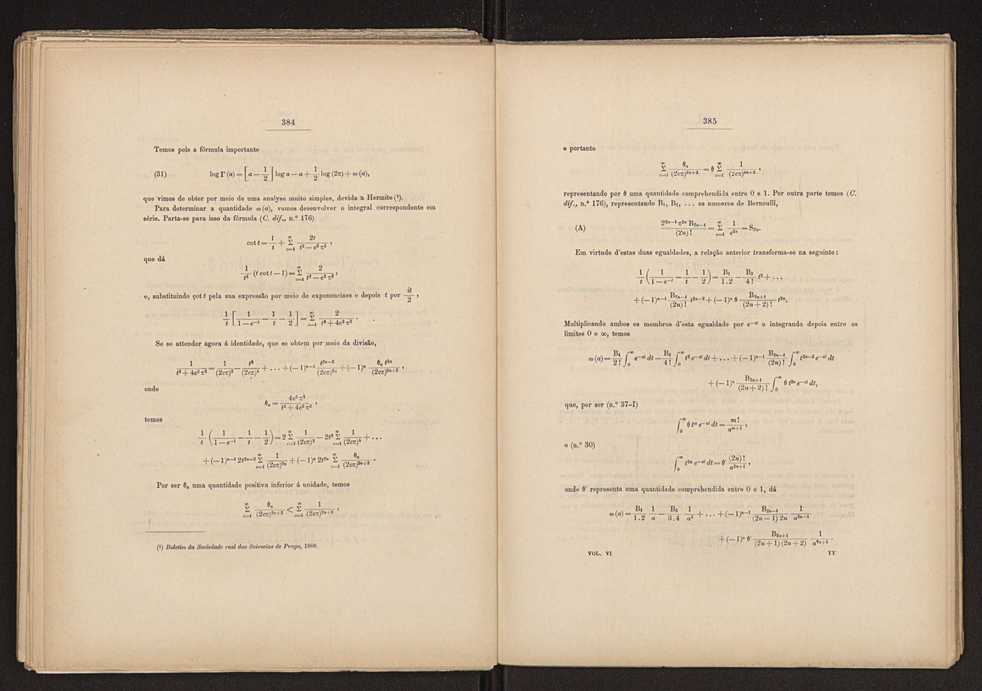 384
Temos pois a fórmula importante
(31) log Γ (a) = [a − 1/2] log a − a + 1/2 log (2π) + ω (a),
que vimos de obter por meio de uma analyse muito simples, devida a Hermite (¹).
Para determinar a quantidade ω (a), vamos desenvolver o integral correspondente em
série. Parta-se para isso da fórmula (C. dif., n.º 176)
cot t = 1/t + Σ_{c=1}^{∞} 2t/(t² − c² π²) ,
que dá
1/t² (t cot t − 1) = Σ_{c=1}^{∞} 2/(t² − c² π²) ,
e, substituindo cot t pela sua expressão por meio de exponenciaes e depois t por it/2 ,
1/t [1/(1 − e^{−t}) − 1/t − 1/2] = Σ_{c=1}^{∞} 2/(t² + 4c² π²) .
Se se attender agora á identidade, que se obtem por meio da divisão,
1/(t² + 4c² π²) = 1/(2cπ)² − t²/(2cπ)⁴ + . . . + (−1)^{n−1} t^{2n−2}/(2cπ)^{2n} + (−1)^n θ_c t^{2n}/(2cπ)^{2n+2} ,
onde
θ_c = 4c² π²/(t² + 4c² π²) ,
temos
1/t (1/(1 − e^{−t}) − 1/t − 1/2) = 2 Σ_{c=1}^{∞} 1/(2cπ)² − 2t² Σ_{c=1}^{∞} 1/(2cπ)⁴ + . . .
+ (−1)^{n−1} 2t^{2n−2} Σ_{c=1}^{∞} 1/(2cπ)^{2n} + (−1)^n 2t^{2n} Σ_{c=1}^{∞} θ_c/(2cπ)^{2n+2} .
Por ser θ_c uma quantidade positiva inferior á unidade, temos
Σ_{c=1}^{∞} θ_c/(2cπ)^{2n+2} < Σ_{c=1}^{∞} 1/(2cπ)^{2n+2} ,
(¹) Boletim da Sociedade real das Sciencias de Praga, 1888.
385
e portanto
Σ_{c=1}^{∞} θ_c/(2cπ)^{2n+2} = θ Σ_{c=1}^{∞} 1/(2cπ)^{2n+2} ,
representando por θ uma quantidade comprehendida entre 0 e 1. Por outra parte temos (C.
dif., n.º 176), representando B₁, B₃, . . . os numeros de Bernoulli,
(A) 2^{2n−1} π^{2n} B_{2n−1}/(2n)! = Σ_{c=1}^{∞} 1/c^{2n} = S_{2n}.
Em virtude d'estas duas egualdades, a relação anterior transforma-se na seguinte:
1/t (1/(1 − e^{−t}) − 1/t − 1/2) = B₁/1.2 − B₃/4! t² + . . .
+ (−1)^{n−1} B_{2n−1}/(2n)! t^{2n−2} + (−1)^n θ B_{2n+1}/(2n + 2)! t^{2n}.
Multiplicando ambos os membros d'esta egualdade por e^{−at} e integrando depois entre os
limites 0 e ∞, temos
ω (a) = B₁/2! ∫₀^∞ e^{−at} dt − B₃/4! ∫₀^∞ t² e^{−at} dt + . . . + (−1)^{n−1} B_{2n−1}/(2n)! ∫₀^∞ t^{2n−2} e^{−at} dt
+ (−1)^n B_{2n+1}/(2n + 2)! ∫₀^∞ θ t^{2n} e^{−at} dt,
que, por ser (n.º 37-I)
∫₀^∞ θ t^n e^{−at} dt = m!/a^{m+1} ,
e (n.º 30)
∫₀^∞ t^{2n} e^{−at} dt = θ′ (2n)!/a^{2n+1} ,
onde θ′ representa uma quantidade comprehendida entre 0 e 1, dá
ω (a) = B₁/1.2 1/a − B₃/3.4 1/a³ + . . . + (−1)^{n−1} B_{2n−1}/(2n − 1) 2n 1/a^{2n−1}
+ (−1)^n θ′ B_{2n+1}/(2n + 1) (2n + 2) 1/a^{2n+1} .
VOL. VI YY